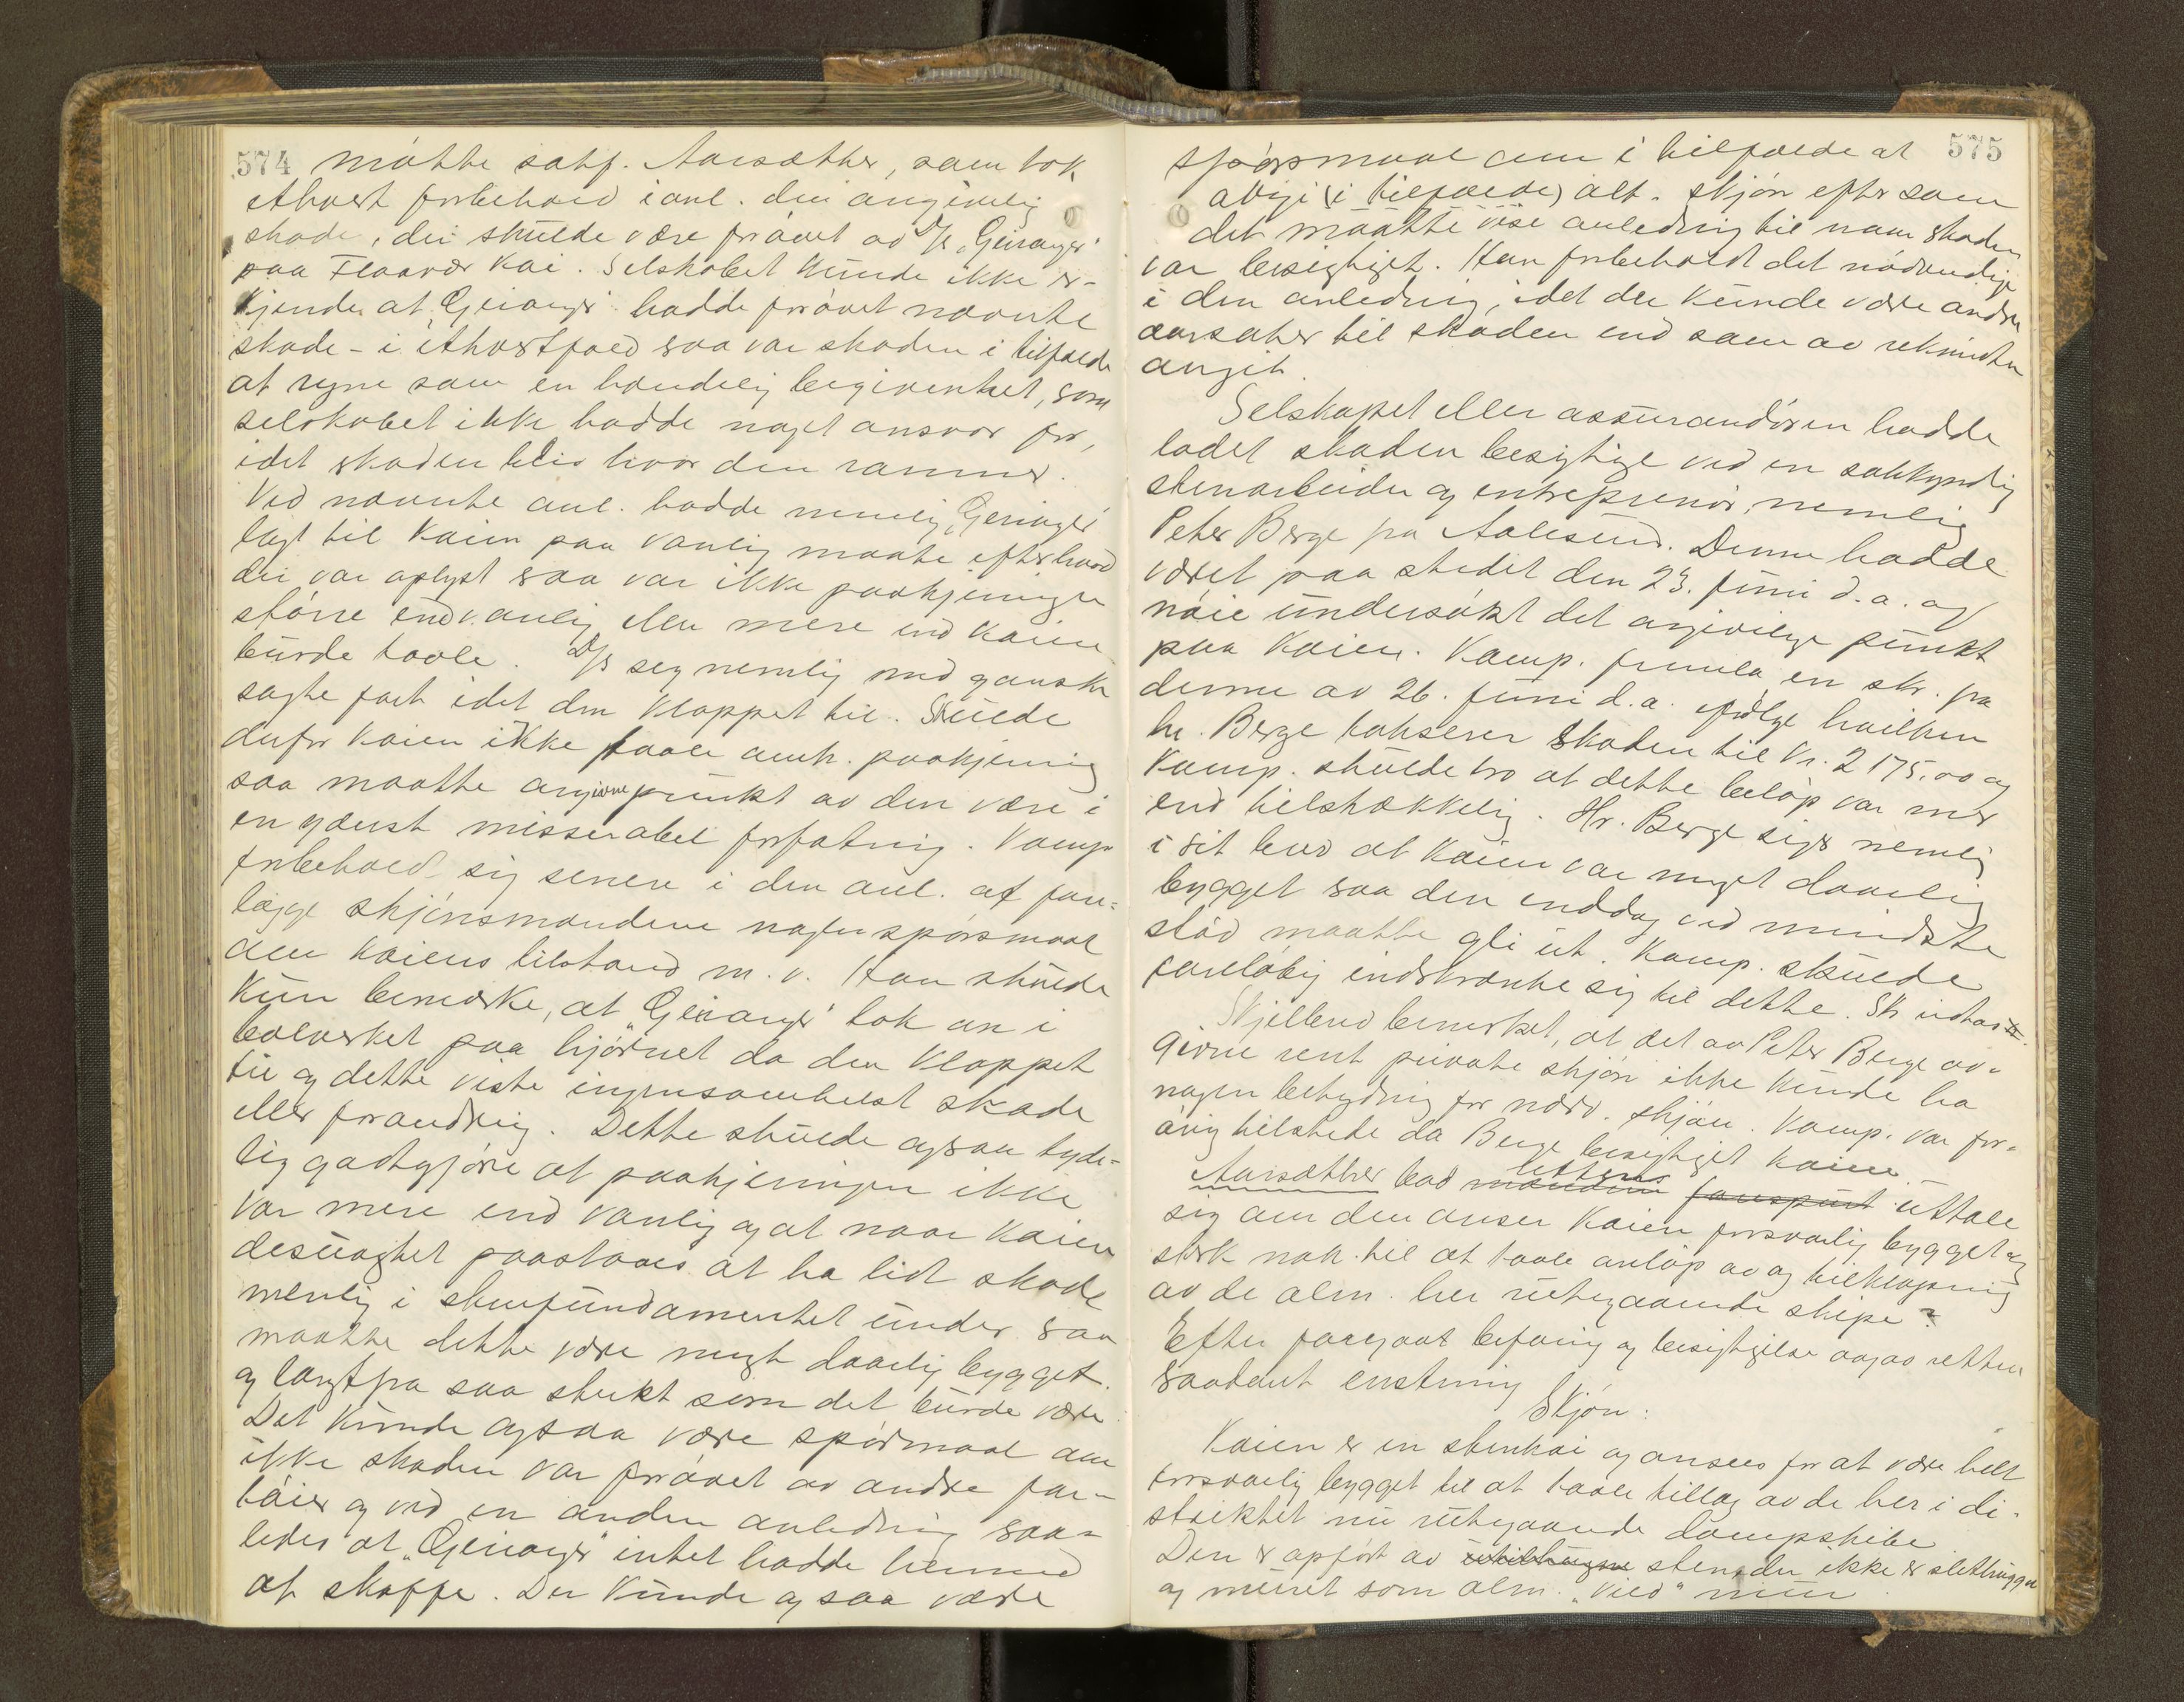 574 møtte sakf. Aarsæther, som tok
ethvert forbehold i anl. den angivelig
skade, der skulde være forøvet av D/S „Geiranger"
paa Flaavær kai. Selskabet kunde ikke er-
kjende at „Geiranger" hadde forøvet nævnte
skade – i ethvertfald saa var skaden i tilfælde
at regne som en hændelig begivenhet, som
selskabet ikke hadde noget ansvar for,
idet skaden blir hvor den rammer.
Ved nævnte anl. hadde nemlig „Geiranger"
lagt til kaien paa vanlig maate efter hvad
der var oplyst saa var ikke paakjenningen
større end vanlig eller mere end kaien
burde taale. D/S seg nemlig med ganske
sagte fart idet den klappet til. Skulde
derfor kaien ikke taale omh. paakjenning
saa maatte angivne punkt av den være i
en yderst misserabel forfatning. Komp.
forbeholdt sig senere i den anl. at fore-
lægge skjønsmændene nogen spørsmaal
om kaiens tilstand m. v. Han skulde
kun bemerke, at „Geiranger" tok an i
bolverket paa hjørnet da den klappet
til og dette viste ingensomhelst skade
eller forandring. Dette skulde ogsaa tyde-
lig godtgjøre at paakjenningen ikke
var mere end vanlig og at naar kaien
desuagtet paastaaes at ha lidt skade
nemlig i stenfundamentet under saa
maatte dette være meget daarlig bygget.
og langt fra saa sterkt som det burde være.
Det kunde ogsaa være spørsmaal om
ikke skaden var forøvet av andre far-
tøier og ved en anden anledning saa-
ledes at „Geiranger" intet hadde hermed
at skaffe. Der kunde ogsaa være
575
spørsmaal om i tilfælde at
avgi (i tilfælde) alt. skjøn efter som
det maatte vise anledning til naar skaden
var besigtiget. Han forbeholdt det nødvendige
i den anledning, idet der kunde være andre
aarsaker til skaden end som av rekvirenten
angit.
Selskapet eller assurandøren hadde
ladet skaden besigtige ved en sakkyndig
stenarbeider og entreprenør, nemlig
Peter Berge fra Aalesund. Denne hadde
været paa stedet den 23. juni d. a. og
nøie undersøkt det angivelige punkt
paa kaien. Komp. fremla en skr. fra
denne av 26. juni d. a. ifølge hvilken
hr. Berge takserer skaden til kr. 2175.00 og
Komp. skulde tro at dette beløp var mer
end tilstrækkelig. Hr. Berge siger nemlig
i sit brev at kaien var meget daarlig
bygget saa den enddog ved mindste
stød maatte gli ut. Komp. skulde
foreløbig indskrænke sig til dette. Skr indtas
Skjellend bemerket, at det av Peter Berge av-
givne rent private skjøn ikke kunde ha
nogen betydning for nærv. skjøn. Komp. var for-
øvrig tilstede da Berge besigtiget kaien.
Aarsæther bad rettens uttale
sig om den anser kaien forsvarlig bygget og
sterk nok til at taale anløp av og tilklapning
av de alm. her rutegaaende skipe?
Efter foregaat befaring og besigtigelse avgav retten
saadant enstemmig
Skjøn:
Kaien er en stenkai og ansees for at være helt
forsvarlig bygget til at taale tillæg av de her i di-
striktet nu rutegaaende dampskibe
Den er opført av sten, der ikke er slethugget
og muret som alm. „vild" mur